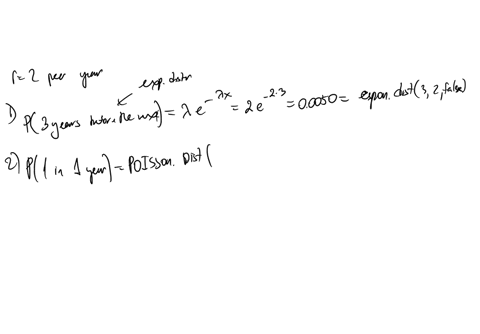 r=2 per year
exp. distr
1) P(3 years before the next) = λe^-λx = 2e^-2·3 = 0.0050 = expon.dist(3, 2, false)
2) P(1 in 1 year) = POISSON. DIST(